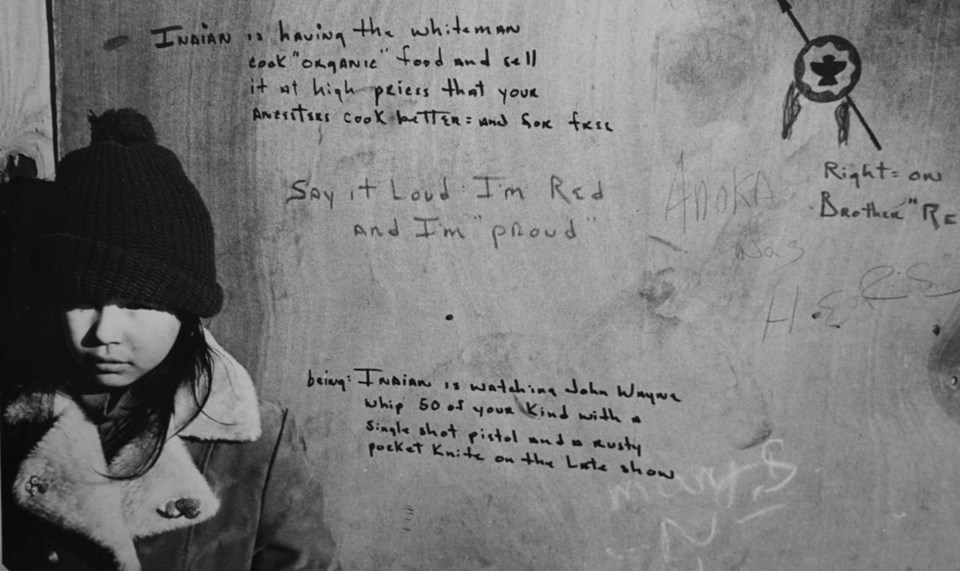 INDIAN is having the whiteman
cook "ORGANIC" food and sell
it at high prices that your
ANCESTERS COOK better: AND FOR FREE
SAY it Loud: I'm Red
AND I'm "pRoud"
ANOKA
was
HERE
Right= on
Brother "RE
being: INDIAN is watching John Wayne
whip 50 of your Kind with a
single shot pistol and a Rusty
pocket Knife on the Late show